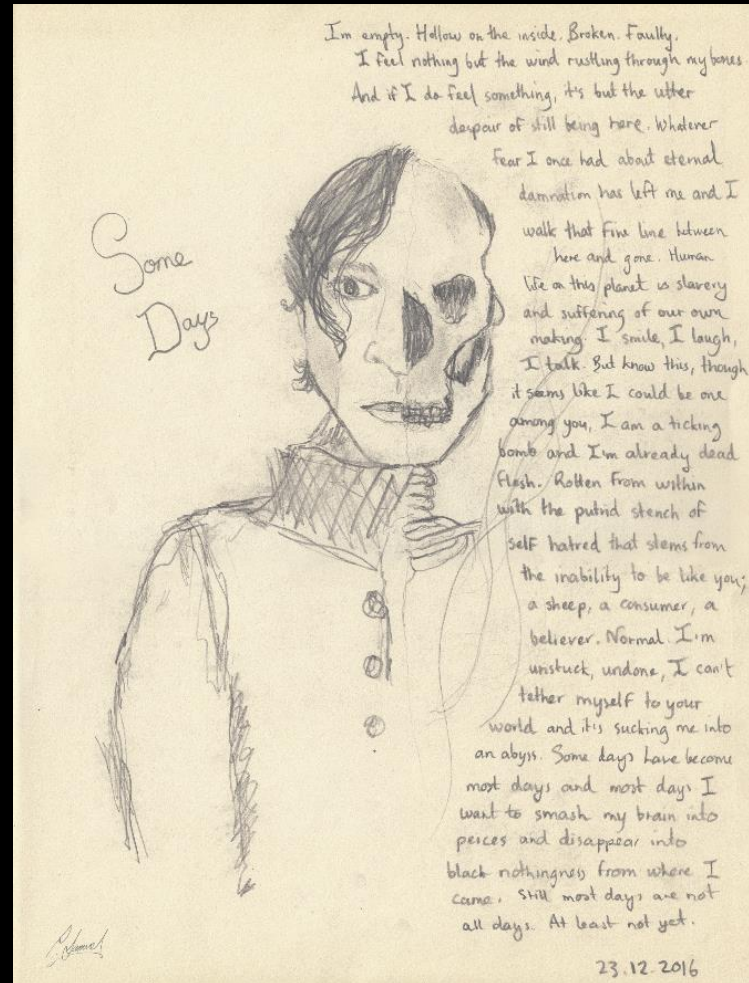 I'm empty. Hollow on the inside. Broken. Faulty.
I feel nothing but the wind rustling through my bones.
And if I do feel something, it's but the utter
despair of still being here. Whatever
fear I once had about eternal
damnation has left me and I
walk that fine line between
here and gone. Human
life on this planet is slavery
and suffering of our own
making. I smile, I laugh,
I talk. But know this, though
it seems like I could be one
among you, I am a ticking
bomb and I'm already dead
flesh. Rotten from within
with the putrid stench of
self hatred that stems from
the inability to be like you;
a sheep, a consumer, a
believer. Normal. I'm
unstuck, undone, I can't
tether myself to your
world and it's sucking me into
an abyss. Some days have become
most days and most days I
want to smash my brain into
peices and disappear into
black nothingness from where I
came. Still most days are not
all days. At least not yet.
23.12.2016
Some
Days